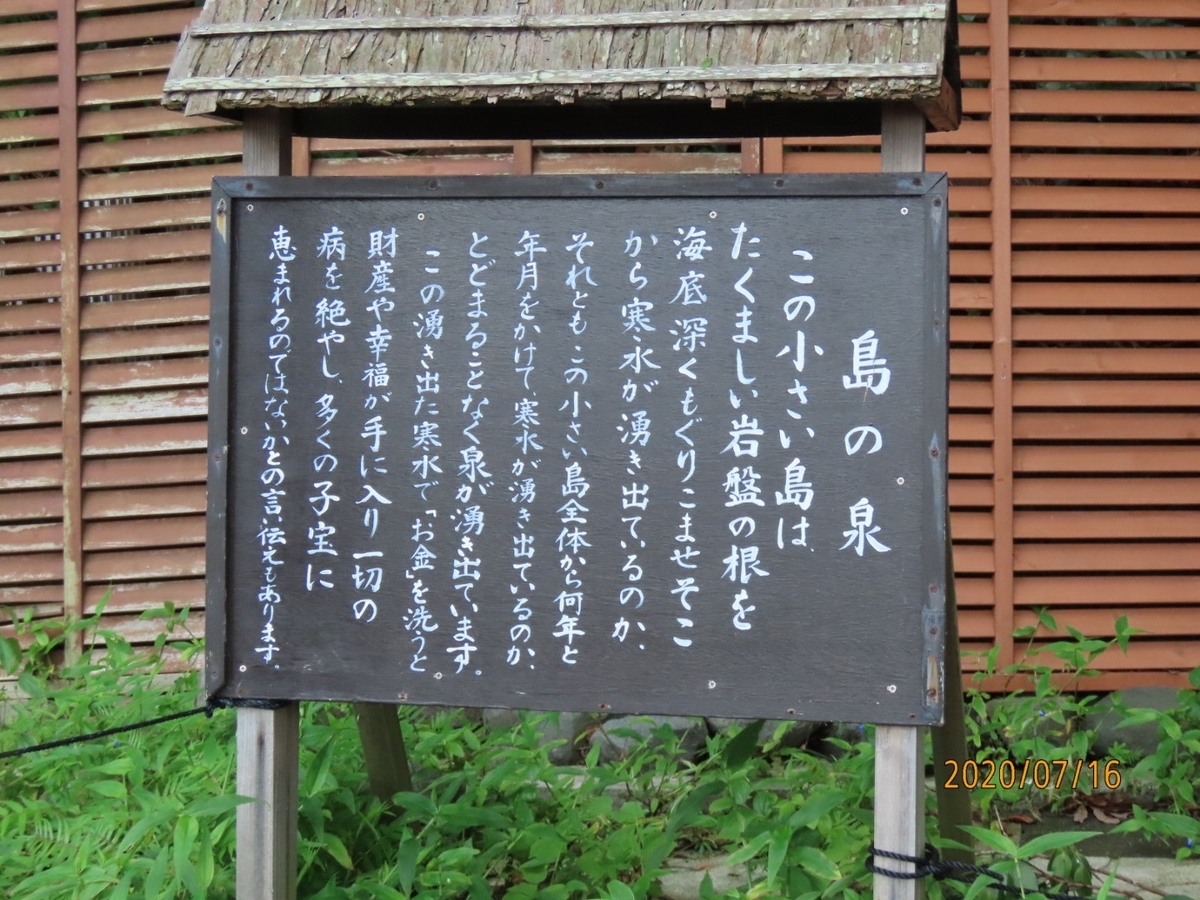 島の泉
この小さい島は、
たくましい岩盤の根を
海底深くもぐりこませそこ
から寒水が湧き出ているのか、
それともこの小さい島全体から何年と
年月をかけて、寒水が湧き出ているのか、
とどまることなく泉が湧き出ています。
この湧き出た寒水で「お金」を洗うと
財産や幸福が手に入り一切の
病を絶やし、多くの子宝に
恵まれるのではないかとの言い伝えもあります。
2020/07/16